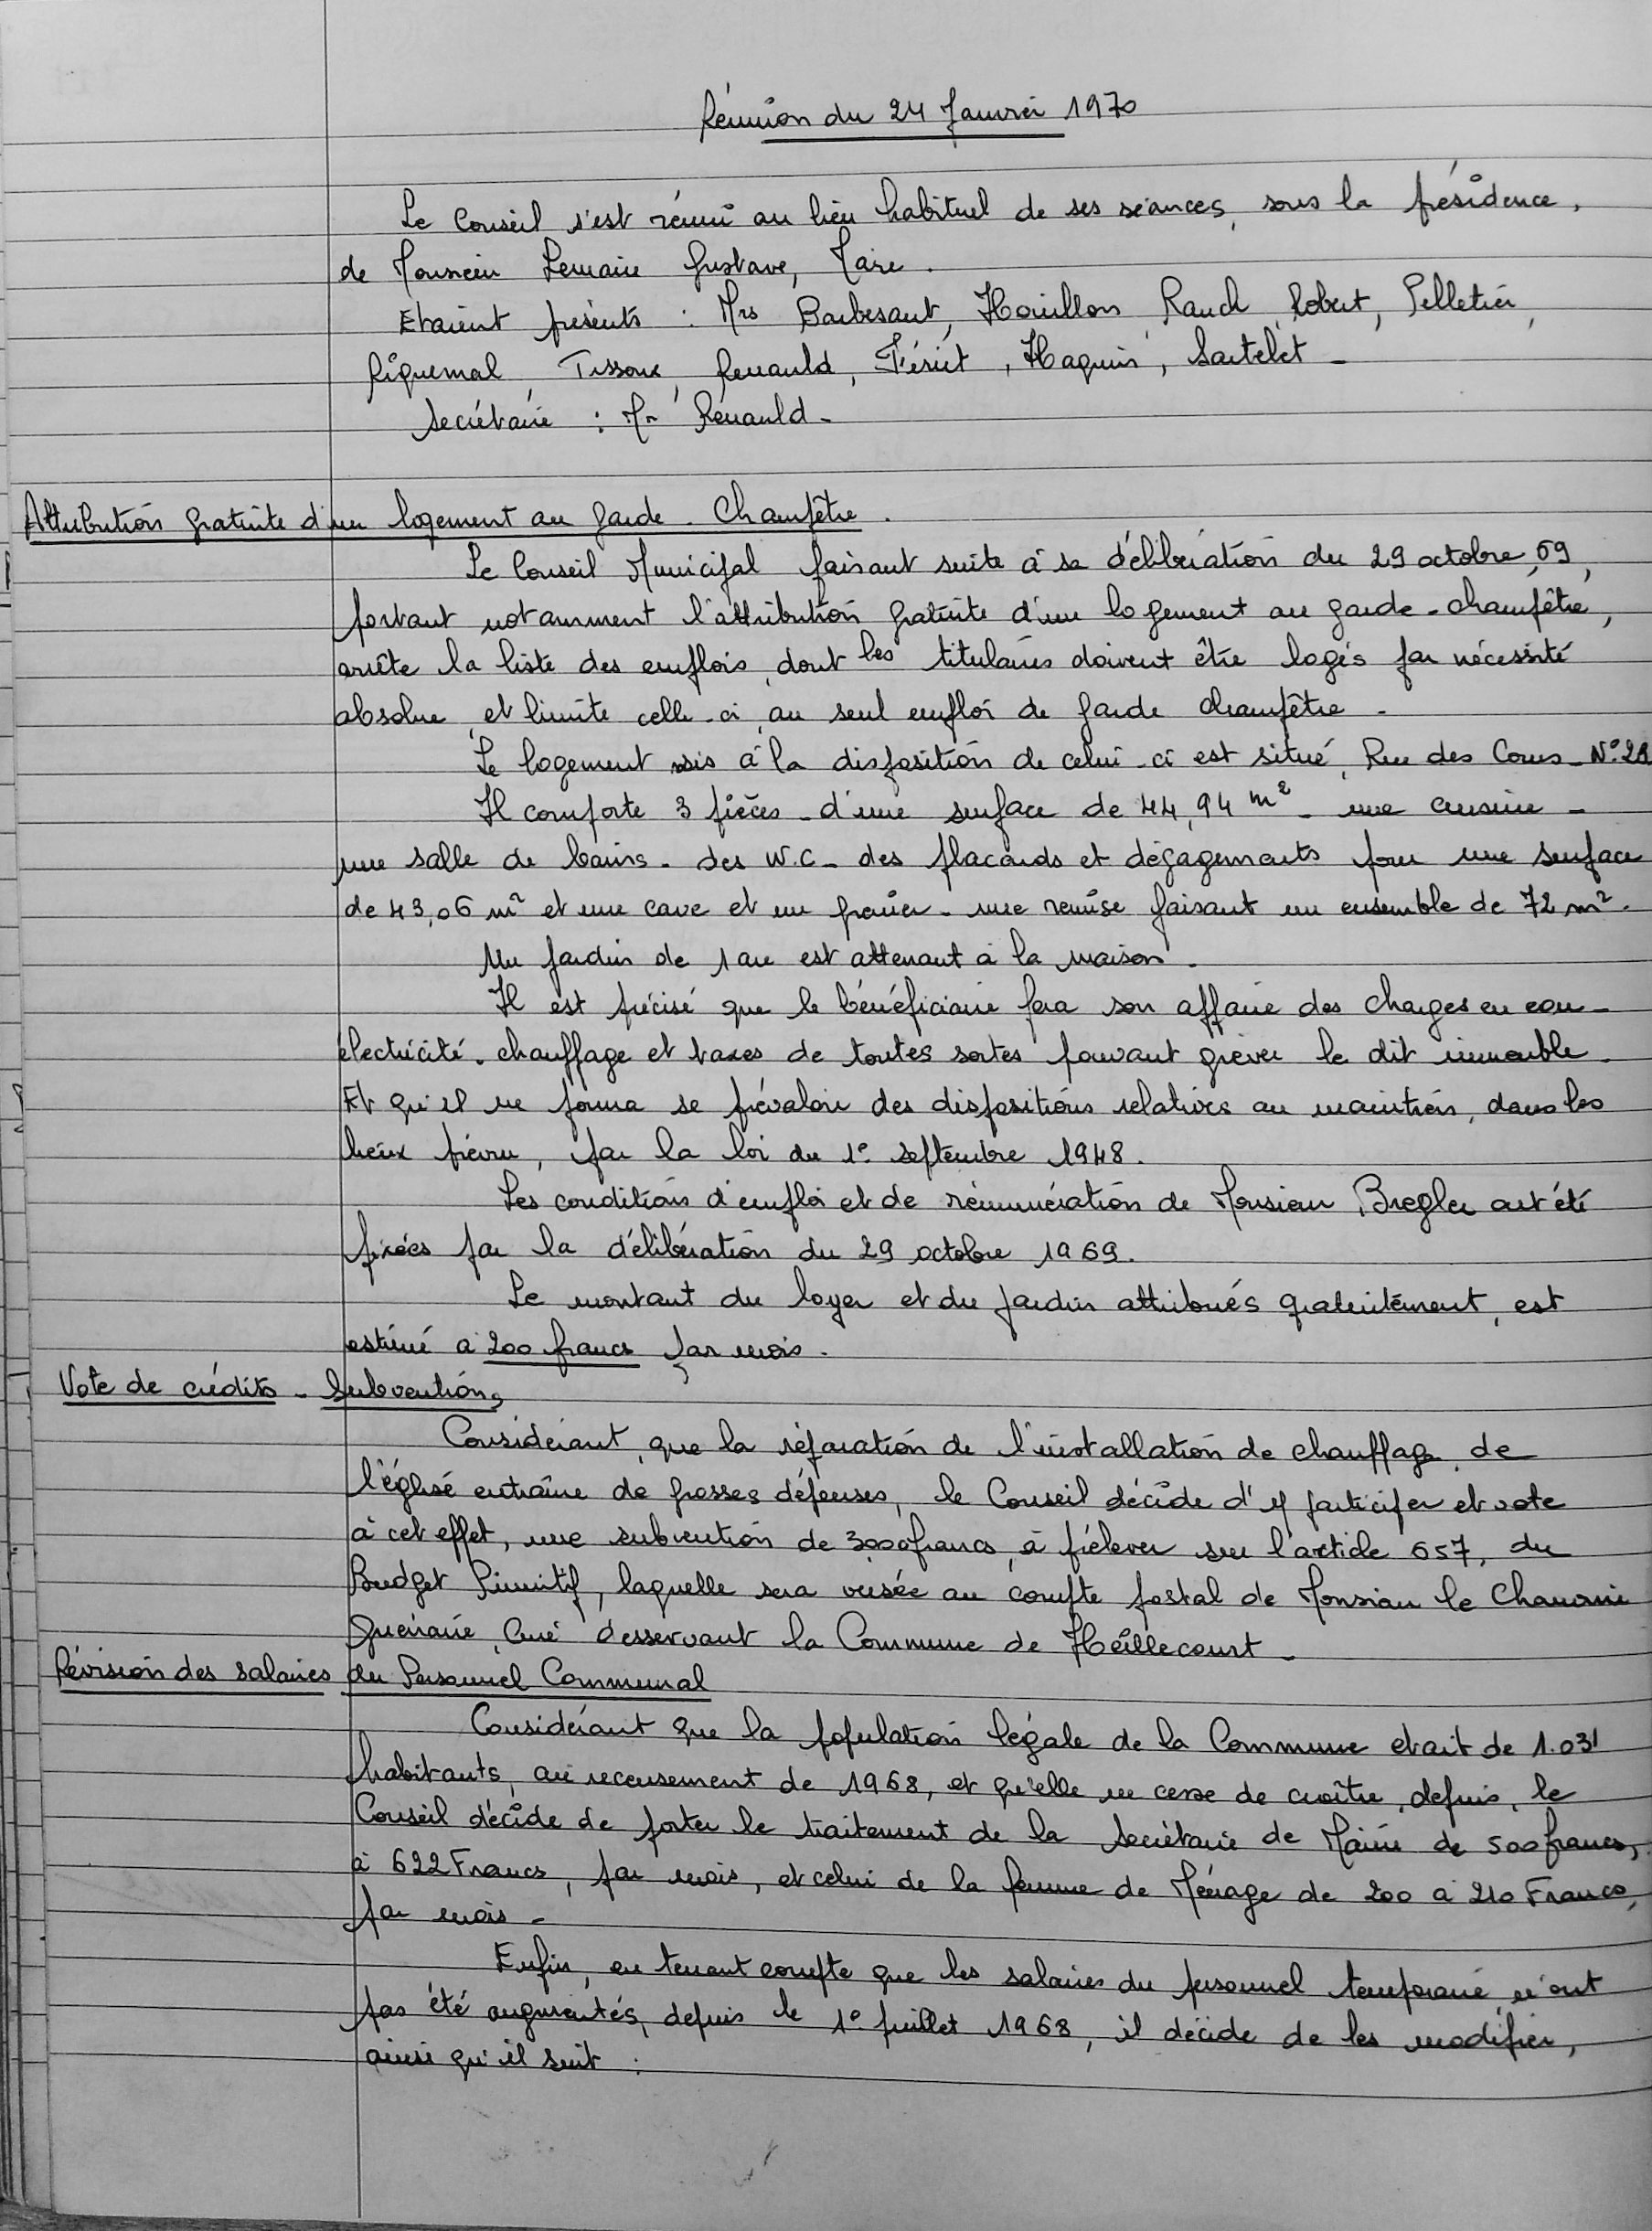 Réunion du 24 Janvier 1970
Le Conseil s'est réuni au lieu habituel de ses séances, sous la présidence,
de Monsieur Lemaire Gustave, Maire.
Etaient présents : Mrs Barbesant, Houillon, Rauch, Robert, Pelletier,
Riquemal, Tissoux, Renauld, Fériet, Haquin, Sartelet -
Secrétaire : Mr Renauld -
Attribution gratuite d'un logement au garde - Champêtre.
Le Conseil Municipal faisant suite à sa délibération du 29 octobre, 69,
portant notamment l'attribution gratuite d'un logement au garde - champêtre,
arrête la liste des emplois, dont les titulaires doivent être logés par nécessité
absolue, et limite celle-ci, au seul emploi de garde champêtre -
Le logement mis à la disposition de celui-ci est situé, Rue des Cours - N°
Il comporte 3 pièces - d'une surface de 44,94 m² - une cuisine -
une salle de bains - des W.C - des placards et dégagements pour une surface
de 43,06 m² et une cave et un grenier - une remise faisant un ensemble de 72 m².
Un jardin de 1 are est attenant à la maison.
Il est précisé que le bénéficiaire fera son affaire des charges en eau -
électricité - chauffage et taxes de toutes sortes pouvant grever le dit immeuble.
Et qu'il ne pourra se prévaloir des dispositions relatives au maintien, dans les
lieux prévu, par la loi du 1° septembre 1948.
Les conditions d'emploi et de rémunération de Monsieur Bregler ont été
fixées par la délibération du 29 octobre 1969.
Le montant du loyer et du jardin attribués gratuitement, est
estimé à 200 francs par mois.
Vote de crédits - Subventions
Considérant, que la réparation de l'installation de chauffage, de
l'église entraîne de grosses dépenses, le Conseil décide d'y participer et vote
à cet effet, une subvention de 3000 francs, à prélever sur l'article 657, du
Budget Primitif, laquelle sera versée au compte postal de Monsieur le Chanoine
Curé desservant la Commune de Heillecourt -
Révision des salaires du Personnel Communal
Considérant que la population légale de la Commune etait de 1.031
habitants, au recensement de 1968, et qu'elle ne cesse de croître, depuis, le
Conseil décide de porter le traitement de la Secrétaire de Mairie de 500 francs,
à 622 Francs, par mois, et celui de la femme de Ménage de 200 à 210 Francs,
par mois -
Enfin, en tenant compte que les salaires du personnel temporaire, n'ont
pas été augmentés, depuis le 1° juillet 1968, il décide de les modifier,
ainsi qu'il suit :